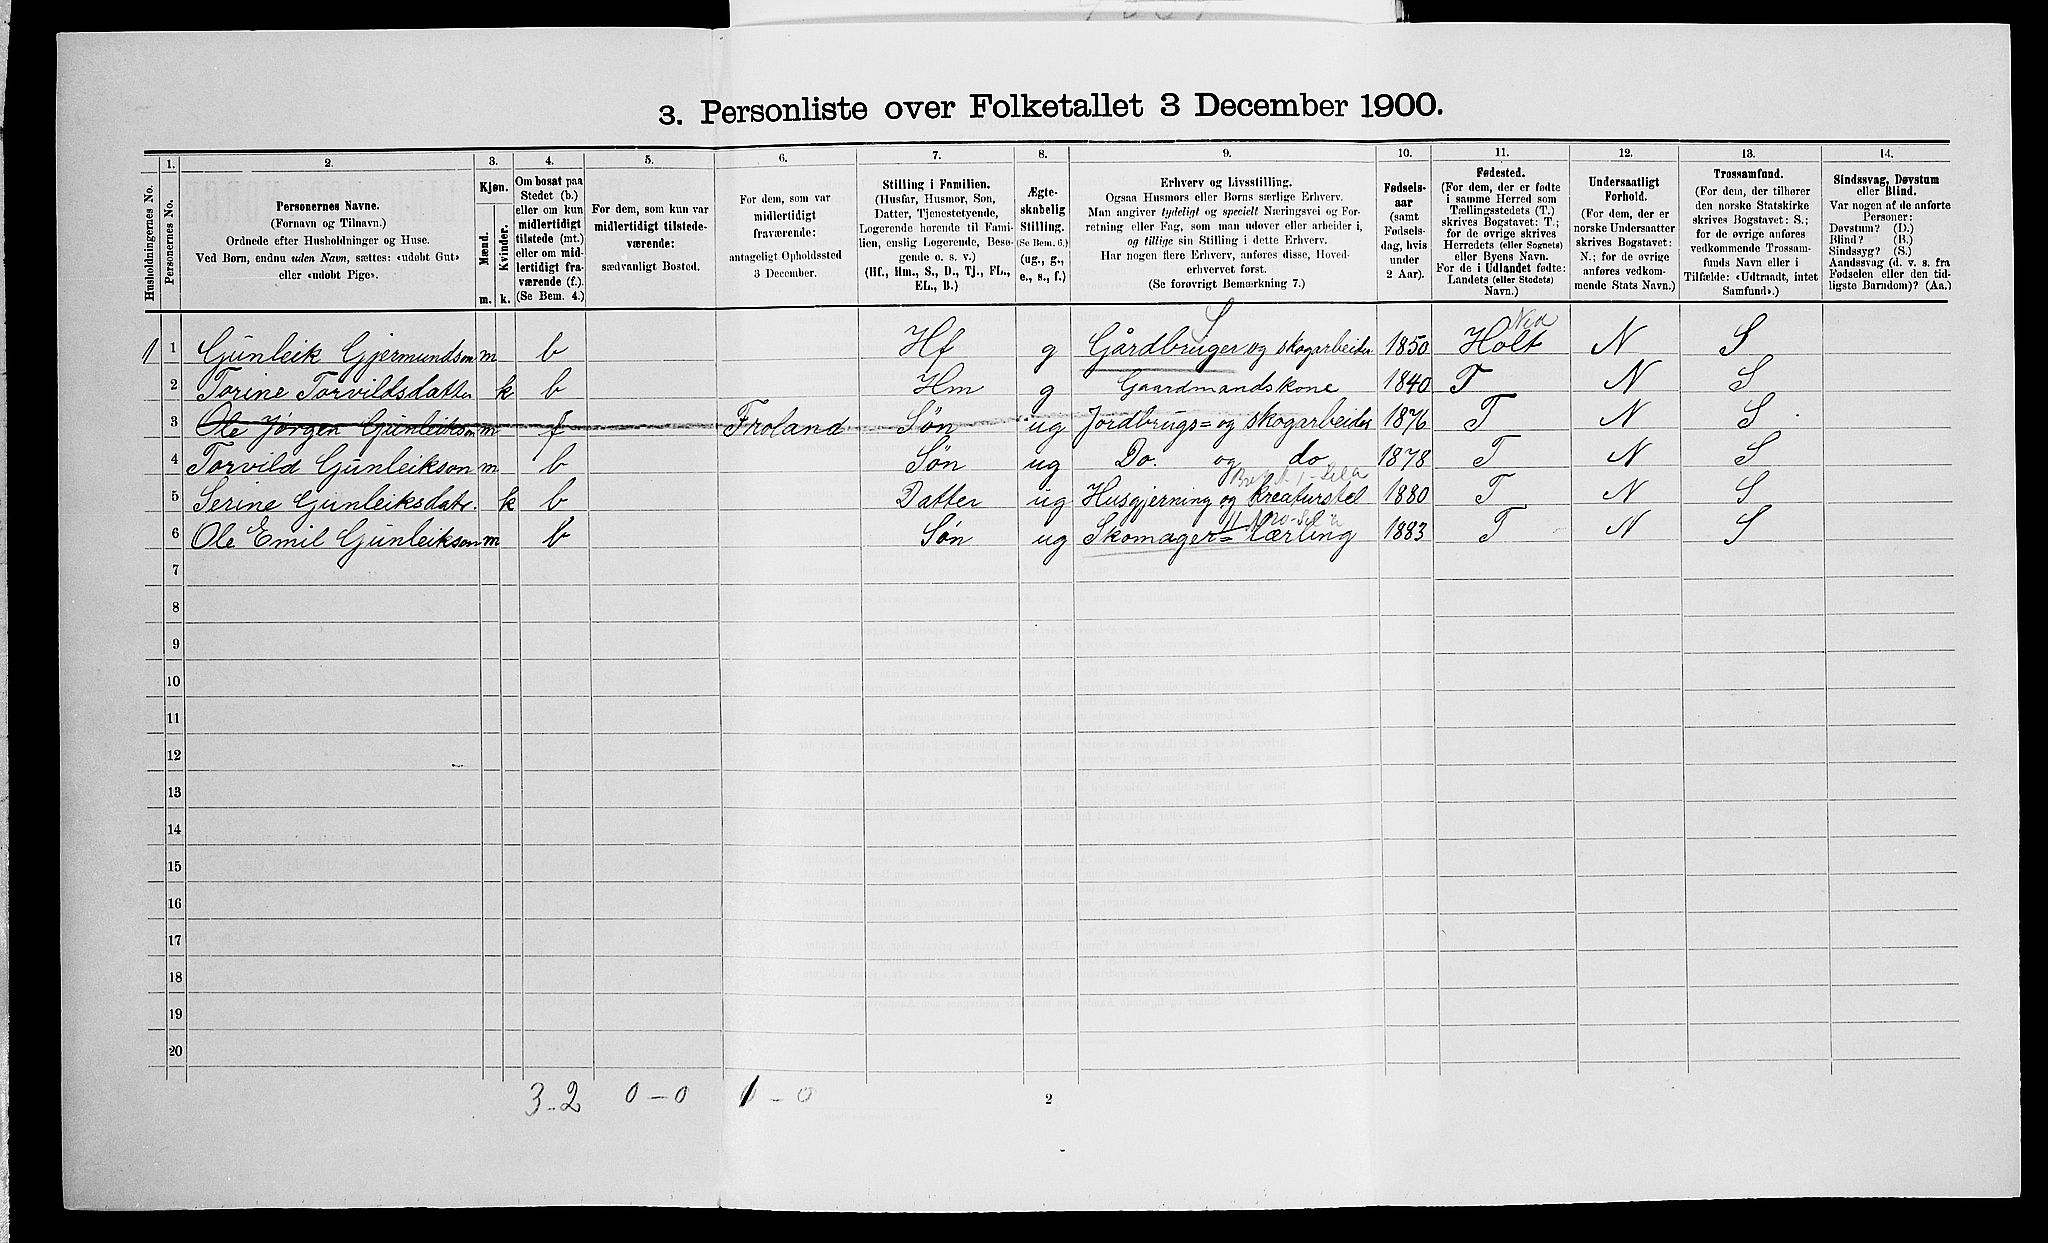 3. Personliste over Folketallet 3 December 1900.
Husholdningernes No.
1.
Personernes No.
2.
Personernes Navne.
(Fornavn og Tilnavn.)
Ordnede efter Husholdninger og Huse.
Ved Børn, endnu uden Navn, sættes: «udøbt Gut»
eller «udøbt Pige».
3.
Kjøn.
Mænd.
Kvinder.
m. k.
4.
Om bosat paa
Stedet (b.)
eller om kun
midlertidigt
tilstede (mt.)
eller om mid-
lertidigt fra-
værende (f.).
(Se Bem. 4.)
5.
For dem, som kun var
midlertidigt tilstede-
værende:
sædvanligt Bosted.
6.
For dem, som var
midlertidigt
fraværende:
antageligt Opholdssted
3 December.
7.
Stilling i Familien.
(Husfar, Husmor, Søn,
Datter, Tjenestetyende,
Logerende hørende til Fami-
lien, enslig Logerende, Besø-
gende o. s. v.)
(Hf., Hm., S., D., Tj., FL.,
EL., B.)
8.
Ægte-
skabelig
Stilling.
(Se Bem. 6.)
(ug., g.,
e., s., f.)
9.
Erhverv og Livsstilling.
Ogsaa Husmors eller Børns særlige Erhverv.
Man angiver tydeligt og specielt Næringsvei og For-
retning eller Fag, som man udøver eller arbeider i,
og tillige sin Stilling i dette Erhverv.
Har nogen flere Erhverv, anføres disse, Hoved-
erhvervet først.
(Se forøvrigt Bemærkning 7.)
10.
Fødsels-
aar
(samt
Fødsels-
dag, hvis
under
2 Aar).
11.
Fødested.
(For dem, der er fødte
i samme Herred som
Tællingsstedets (T.)
skrives Bogstavet: T.;
for de øvrige skrives
Herredets (eller Sognets)
eller Byens Navn.
For de i Udlandet fødte:
Landets (eller Stedets)
Navn.)
12.
Undersaatligt
Forhold.
(For dem, der er
norske Undersaatter
skrives Bogstavet:
N.; for de øvrige
anføres vedkom-
mende Stats Navn.)
13.
Trossamfund.
(For dem, der tilhører
den norske Statskirke
skrives Bogstavet: S.;
for de øvrige anføres
vedkommende Trossam-
funds Navn eller i
Tilfælde: «Udtraadt, intet
Samfund».)
14.
Sindssvag, Døvstum
eller Blind.
Var nogen af de anførte
Personer:
Døvstum? (D.)
Blind? (B.)
Sindssyg? (S.)
Aandssvag (d. v. s. fra
Fødselen eller den tid-
ligste Barndom)? (Aa.)
S Ned
1 1 Gunleik Gjermundson m b Hf g Gårdbruger og skogarbeider 1850 Holt N S
2 Torine Torvildsdatter k b Hm g Gaardmandskone 1840 T N S
3 Ole Jørgen Gunleikson m f Froland Søn ug Jordbrugs= og skogarbeider 1876 T N S
4 Torvild Gunleikson m b Søn ug Do. og do 1878 T N S
5 Serine Gunleiksdatr. k b Datter ug Husgjerning og kreaturstel 1880 T N S
6 Ole Emil Gunleikson m b Søn ug Skomager=Lærling 1883 T N S
7
8
9
10
11
12
13
14
15
16
17
18
19
20
3-2 0-0 1-0
2